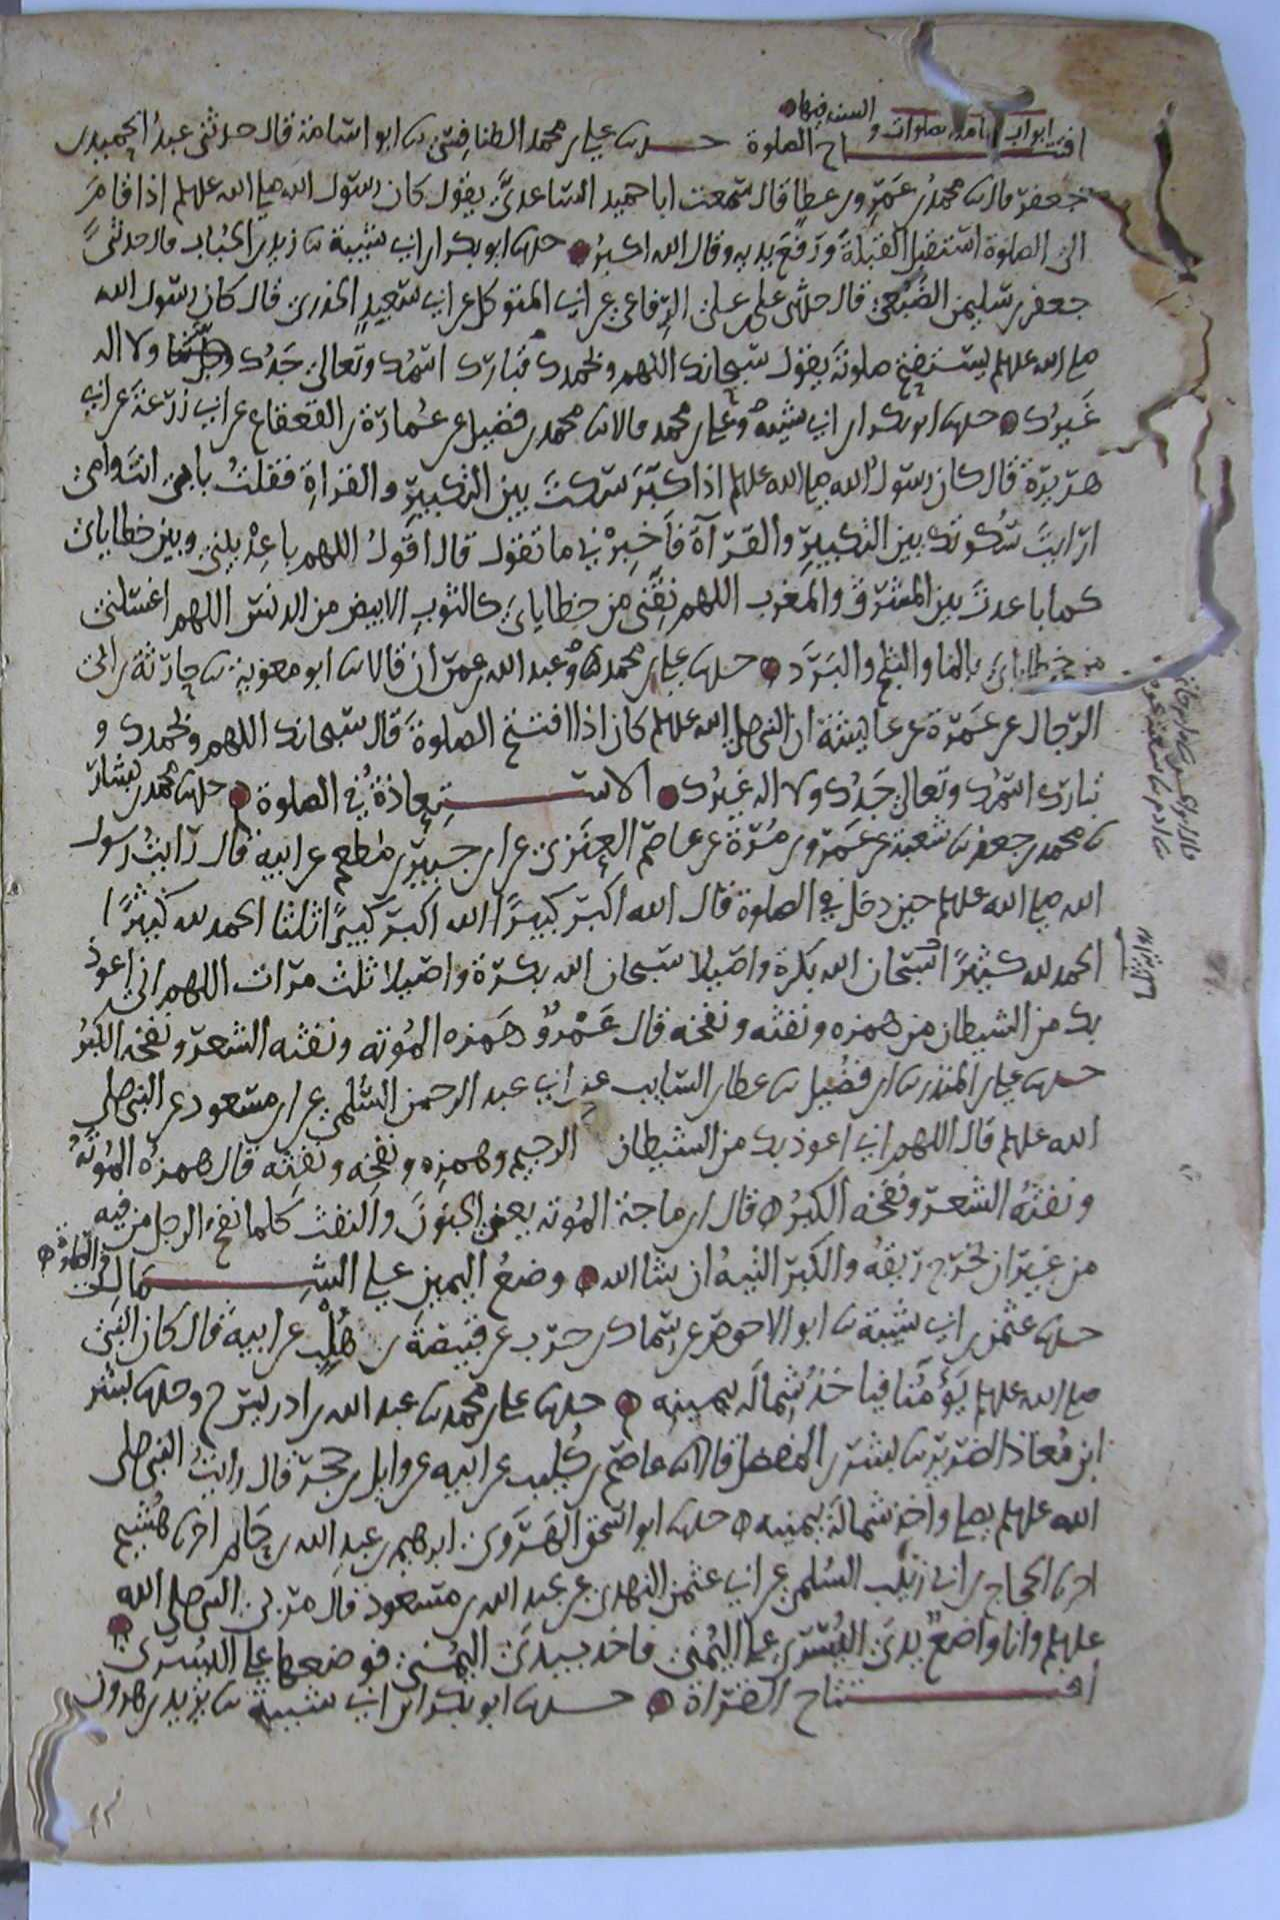 ابواب اقامة الصلوات والسنة فيها
افتتاح الصلوة حدثنا علي بن محمد الطنافسي ثنا ابو اسامة قال حدثنى عبد الحميد بن
جعفر قال ثنا محمد بن عمرو بن عطا قال سمعت ابا حميد الساعدي يقول كان رسول الله صلى الله عليه وسلم اذا قام
الى الصلوة استقبل القبلة ورفع يديه وقال الله اكبر حدثنا ابو بكر ابن ابي شيبة ثنا زيد بن الحباب قال حدثنى
جعفر بن سليمن الضبعي قال حدثنى علي بن علي الرفاعي عن ابي المتوكل عن ابي سعيد الخدري قال كان رسول الله
صلى الله عليه وسلم يستفتح صلوته يقول سبحانك اللهم وبحمدك تبارك اسمك وتعالى جدك ولا اله
غيرك حدثنا ابو بكر ابن ابي شيبة وعلي بن محمد قالا ثنا محمد بن فضيل عن عمارة بن القعقاع عن ابي زرعة عن ابي
هريرة قال كان رسول الله صلى الله عليه وسلم اذا كبر سكت بين التكبير والقراة فقلت بابي انت وامي
ارايت سكوتك بين التكبير والقراة فاخبرني ما تقول قال اقول اللهم باعد بيني وبين خطاياي
كما باعدت بين المشرق والمغرب اللهم نقني من خطاياي كالثوب الابيض من الدنس اللهم اغسلني
من خطاياي بالما والثلج والبرد حدثنا علي بن محمد وعبد الله بن عمران قالا ثنا ابو معوية ثنا حارثة بن ابي
الرجال عن عمرة عن عايشة ان النبي صلى الله عليه وسلم كان اذا افتتح الصلوة قال سبحانك اللهم وبحمدك و
تبارك اسمك وتعالى جدك ولا اله غيرك الاستعاذة في الصلوة حدثنا محمد بن بشار
ثنا محمد بن جعفر ثنا شعبة عن عمرو بن مرة عن عاصم العنزي عن ابن جبير بن مطعم عن ابيه قال رايت رسول
الله صلى الله عليه وسلم حين دخل في الصلوة قال الله اكبر كبيرا الله اكبر كبيرا ثلثا الحمد لله كثيرا
الحمد لله كثيرا سبحان الله بكرة واصيلا سبحان الله بكرة واصيلا ثلث مرات اللهم اني اعوذ
بك من الشيطان من همزه ونفثه ونفخه قال عمرو همزه الموتة ونفثه الشعر ونفخه الكبر
حدثنا علي بن المنذر ثنا ابن فضيل ثنا عطا بن السايب عن ابي عبد الرحمن السلمي عن ابن مسعود عن النبي صلى
الله عليه وسلم قال اللهم اني اعوذ بك من الشيطان الرجيم وهمزه ونفخه ونفثه قال همزه الموتة
ونفثه الشعر ونفخه الكبر قال ابن ماجة الموتة يعني الجنون والنفث كلما نفخ الرجل من فيه
من غير ان يخرج ريقه والكبر التيه ان شا الله وضع اليمين على الشمال في الصلوة
حدثنا عثمن بن ابي شيبة ثنا ابو الاحوص عن سماك بن حرب عن قبيصة بن هلب عن ابيه قال كان النبي
صلى الله عليه وسلم يؤمنا فياخذ شماله بيمينه حدثنا علي بن محمد ثنا عبد الله بن ادريس ح وحدثنا بشر
ابن معاذ الضرير ثنا بشر بن المفضل قالا ثنا عاصم بن كليب عن ابيه عن وايل بن حجر قال رايت النبي صلى
الله عليه وسلم يصلي واخذ شماله بيمينه حدثنا ابو اسحق الهروي ابرهيم بن عبد الله بن حاتم اخبرنا هشيم
اخبرنا الحجاج بن ابي زينب السلمي عن ابي عثمن النهدي عن عبد الله بن مسعود قال مر بي النبي صلى الله
عليه وسلم وانا واضع يدي اليسرى على اليمنى فاخذ بيدي اليمنى فوضعها على اليسرى
افتتاح القراة حدثنا ابو بكر ابن ابي شيبة ثنا يزيد بن هرون